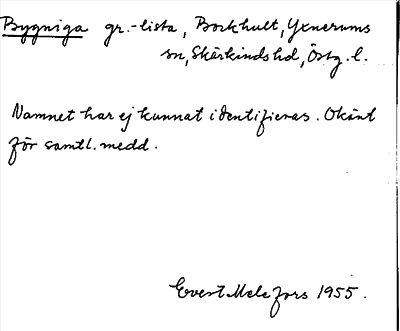 Bygniga gr.-lista, Borkhult, Yxnerums
sn, Skärkinds hd, Östg. l.
Namnet har ej kunnat identifieras. Okänt
för samtl. medd.
Evert Melefors 1955.